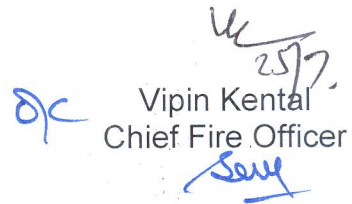 25/7.
O/C
Vipin Kental
Chief Fire Officer